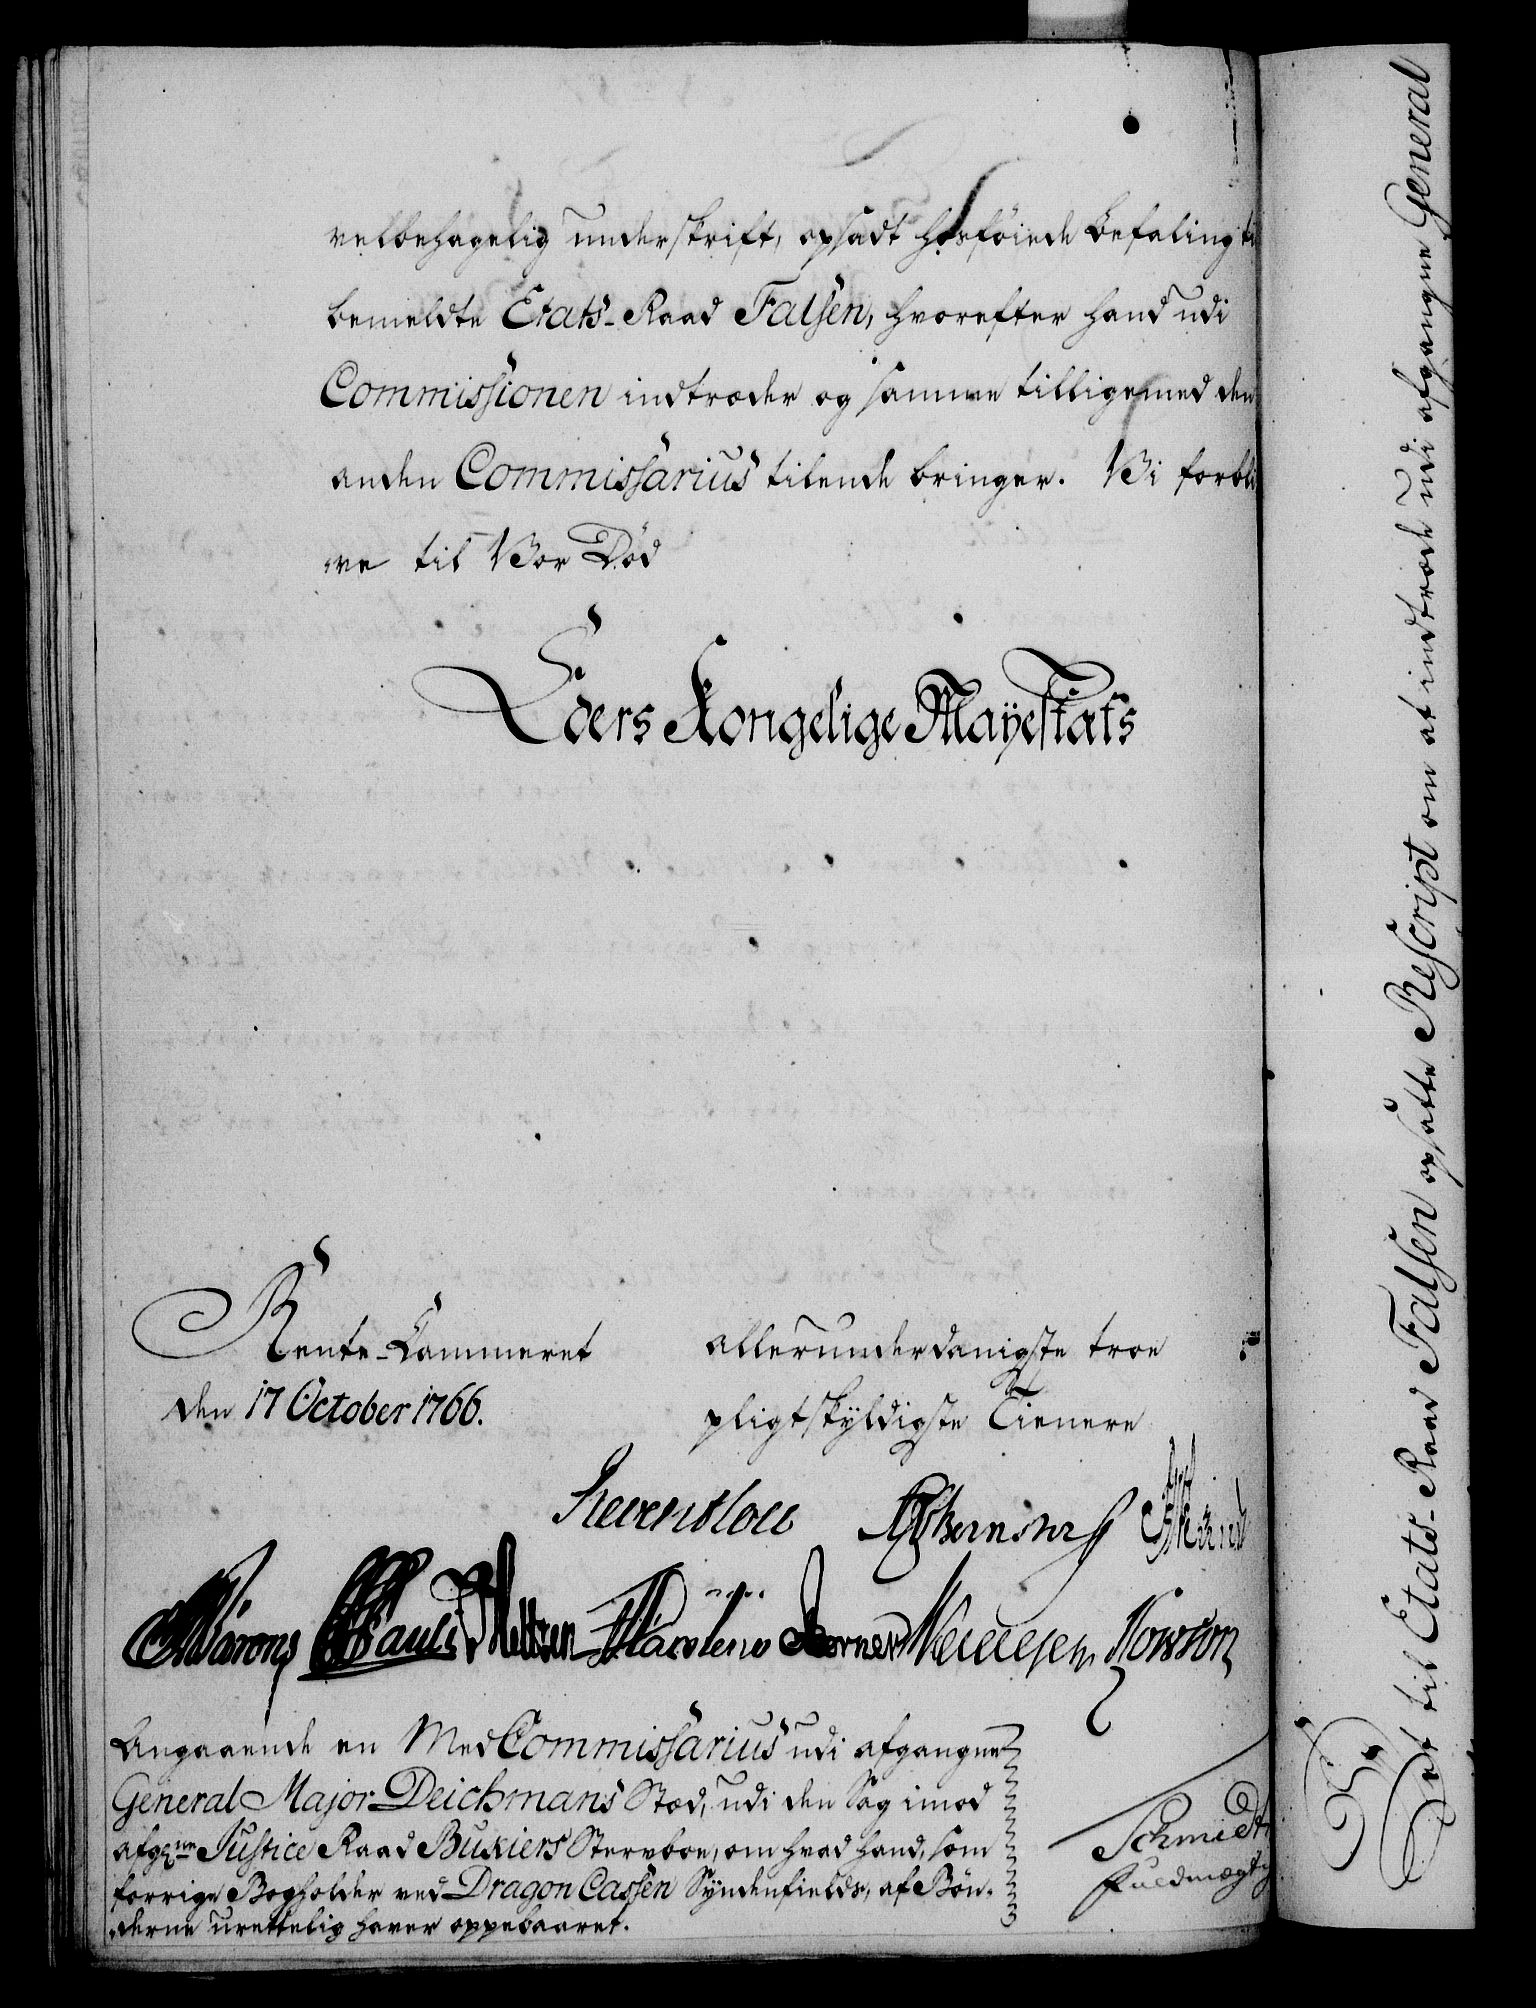 velbehagelig underskrift, opsadt hosføiede Befaling ti
bemeldte Etats-Raad Falsen, hvorefter hand udi
Commissionen indtræder og samme tilligemed den
anden Commissarius tilende bringer. Vi forbli
ve til Vor Død
Eders Kongelige Mayestæts
Rente-Cammeret
den 17 October 1766.
allerunderdanigste troe
pligtskyldigste Tienere
Angaaende en Med Commissarius udi afgangne
General Major Deichmans Stæd, udi den Sag imod
afgne Justice Raad Buxiers Stervboe, om hvad hand, som
forrige Bogholder ved Dragon Cassen Syndenfields, af Bøn-
derne urettelig haver oppebaaret.
Schmidt
Fuldmægtig
Det til Etats-Raad Falsen opsatte Rescript om at indtræde udi afgangne General